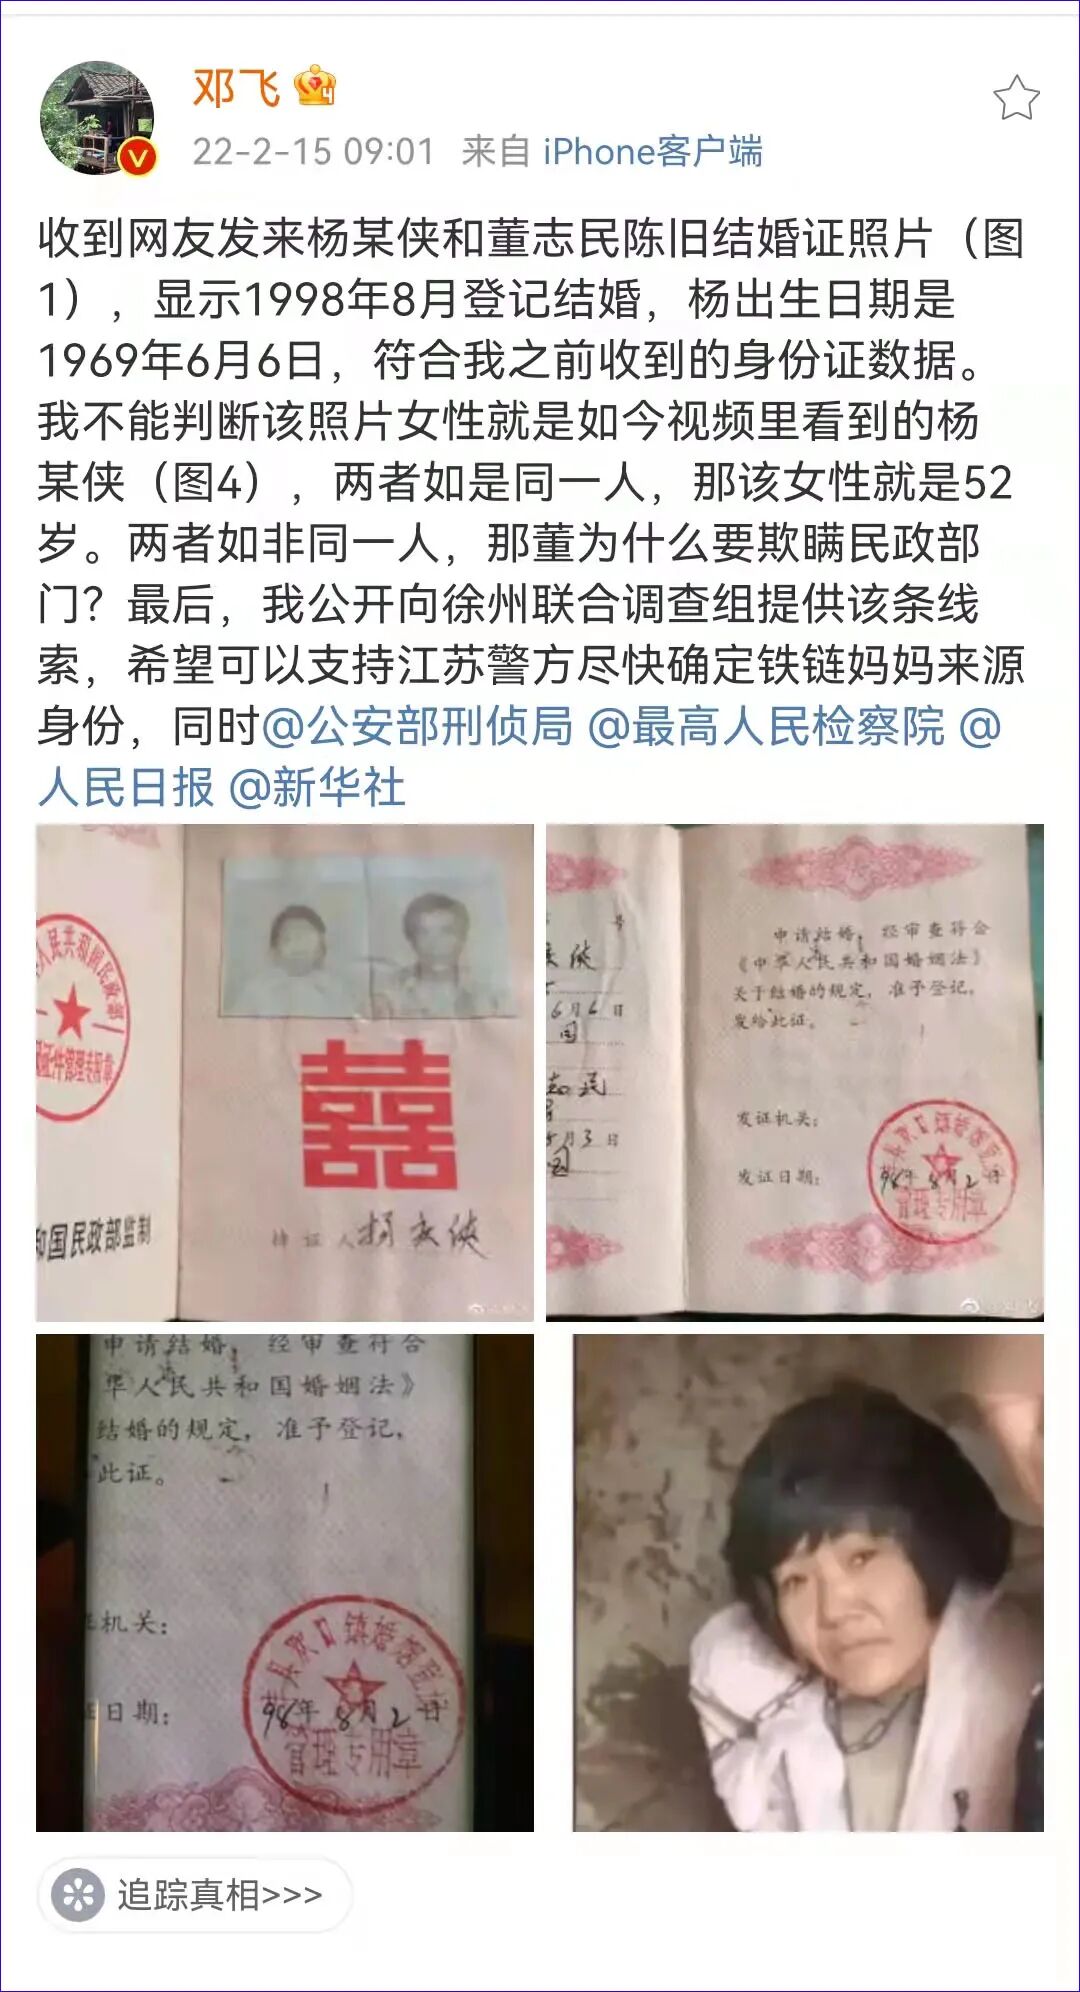 邓飞
22-2-15 09:01 来自 iPhone客户端
收到网友发来杨某侠和董志民陈旧结婚证照片（图
1），显示1998年8月登记结婚，杨出生日期是
1969年6月6日，符合我之前收到的身份证数据。
我不能判断该照片女性就是如今视频里看到的杨
某侠（图4），两者如是同一人，那该女性就是52
岁。两者如非同一人，那董为什么要欺瞒民政部
门？最后，我公开向徐州联合调查组提供该条线
索，希望可以支持江苏警方尽快确定铁链妈妈来源
身份，同时@公安部刑侦局 @最高人民检察院 @
人民日报 @新华社
人民共和国民政部
证件管理专用章
囍
和国民政部监制
持证人 杨庆侠
号
侠
6月6日
国
志民
月3日
国
申请结婚，经审查符合
《中华人民共和国婚姻法》
关于结婚的规定，准予登记，
发给此证。
发证机关：
发证日期：
98年8月2日
管理专用章
申请结婚，经审查符合
华人民共和国婚姻法》
结婚的规定，准予登记，
此证。
机关：
日期：
县欢口镇婚姻登记
98年8月2日
管理专用章
追踪真相>>>